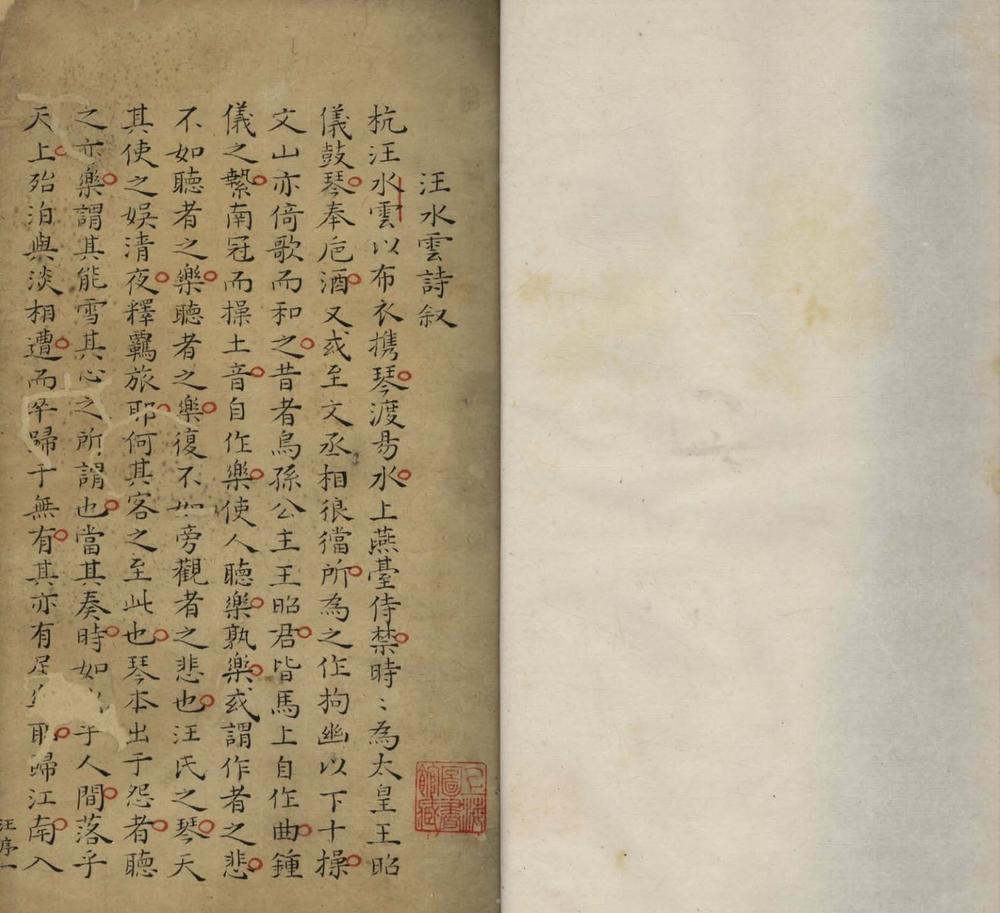 汪水雲詩叙
杭汪水雲以布衣携琴渡易水上燕臺侍禁時〻為太皇王昭
儀鼓琴奉卮酒又或至文丞相狼犺所為之作拘幽以下十操
文山亦倚歌而和之昔者烏孫公主王昭君皆馬上自作曲鍾
儀之縶南冠而操土音自作樂使人聽樂孰樂或謂作者之悲
不如聽者之樂聽者之樂復不如旁觀者之悲也汪氏之琴天
其使之娛清夜釋羈旅耶何其客之至此也琴本出于怨者聽
之亦樂謂其能雪其心之所謂也當其奏時如乎人間落乎
天上殆泊與淡相遭而卒歸于無有其亦有足耶歸江南入
汪序一
上海圖書館藏